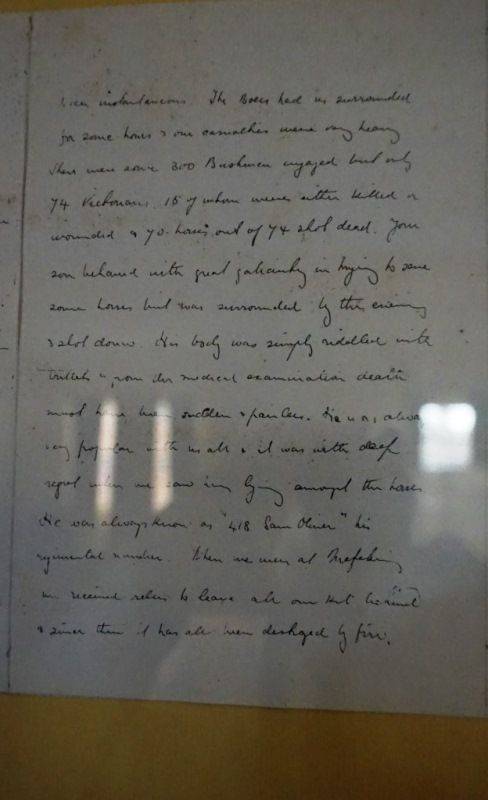 been instantaneous. The Boers had us surrounded
for some hours & our casualties were very heavy
There were some 300 Bushmen engaged but only
74 Victorians. 15 of whom were either killed or
wounded & 70 horses out of 74 shot dead. Your
son behaved with great gallantry in trying to save
some horses but was surrounded by the enemy
& shot down. His body was simply riddled with
bullets & from the medical examination death
must have been sudden & painless. He was always
very popular with us all & it was with deep
regret when we saw him lying amongst the horses
He was always known as "418 Sam Oliver" his
regimental number. When we were at
we received orders to leave all our kit behind
& since then it has all been destroyed by fire.